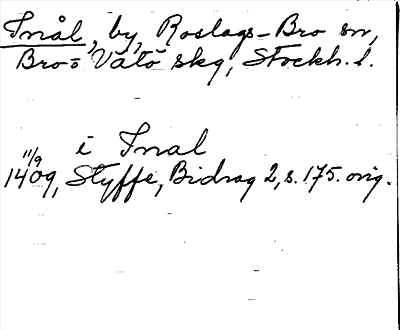 Snål, by, Roslags-Bro sn,
Bro- o Vätö skg, Stockh. l.
i Snal
11/9
1409, Styffe, Bidrag 2, s. 175. orig.